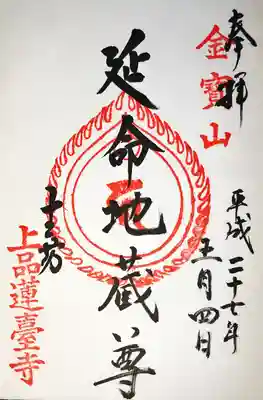 奉拝
金寶山
平成二十七年
五月四日
延命地蔵尊
上品蓮臺寺